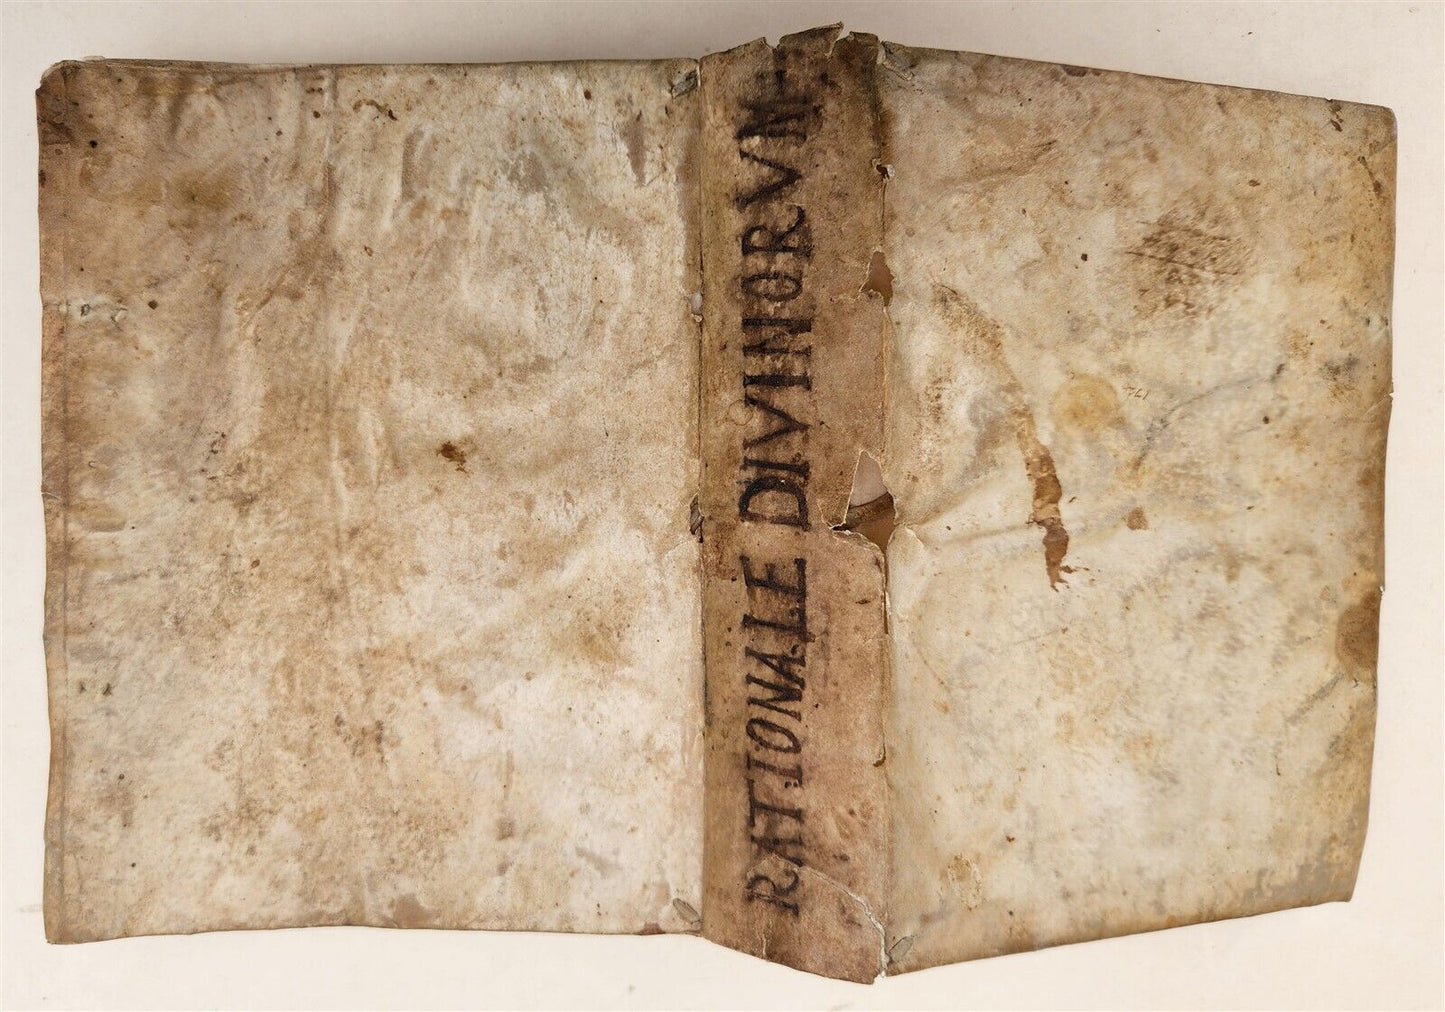 RATIONALE DIVINIORVM